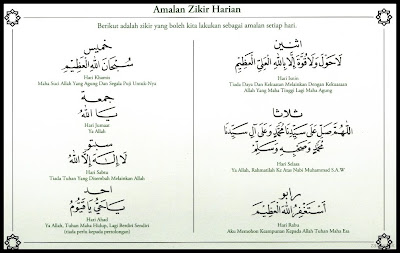 Amalan Zikir Harian
Berikut adalah zikir yang boleh kita lakukan sebagai amalan setiap hari.
اثنين
لَاحَوْلَ وَلَاقُوَّةَ إِلَّا بِاللهِ الْعَلِيِّ الْعَظِيْمِ
Hari Isnin
Tiada Daya Dan Kekuatan Melainkan Dengan Kekuasaan
Allah Yang Maha Tinggi Lagi Maha Agung
ثلاثا
اَللّٰهُمَّ صَلِّ عَلَى سَيِّدِنَا مُحَمَّدٍ وَعَلَى آلِ سَيِّدِنَا
مُحَمَّدٍ وَصَحْبِهِ وَسَلِّمْ
Hari Selasa
Ya Allah, Rahmatilah Ke Atas Nabi Muhammad S.A.W
رابو
أَسْتَغْفِرُ اللهَ الْعَظِيْمَ
Hari Rabu
Aku Memohon Keampunan Kepada Allah Tuhan Maha Esa
خميس
سُبْحَانَ اللهِ الْعَظِيْمِ
Hari Khamis
Maha Suci Allah Yang Agung Dan Segala Puji Untuk-Nya
جمعة
يَا اَللهُ
Hari Jumaat
Ya Allah
سبتو
لَا إِلٰهَ إِلَّا اللهُ
Hari Sabtu
Tiada Tuhan Yang Disembah Melainkan Allah
احد
يَا حَيُّ يَا قَيُّوْمُ
Hari Ahad
Ya Allah, Tuhan Maha Hidup, Lagi Berdiri Sendiri
(tiada perlu kepada pertolongan)